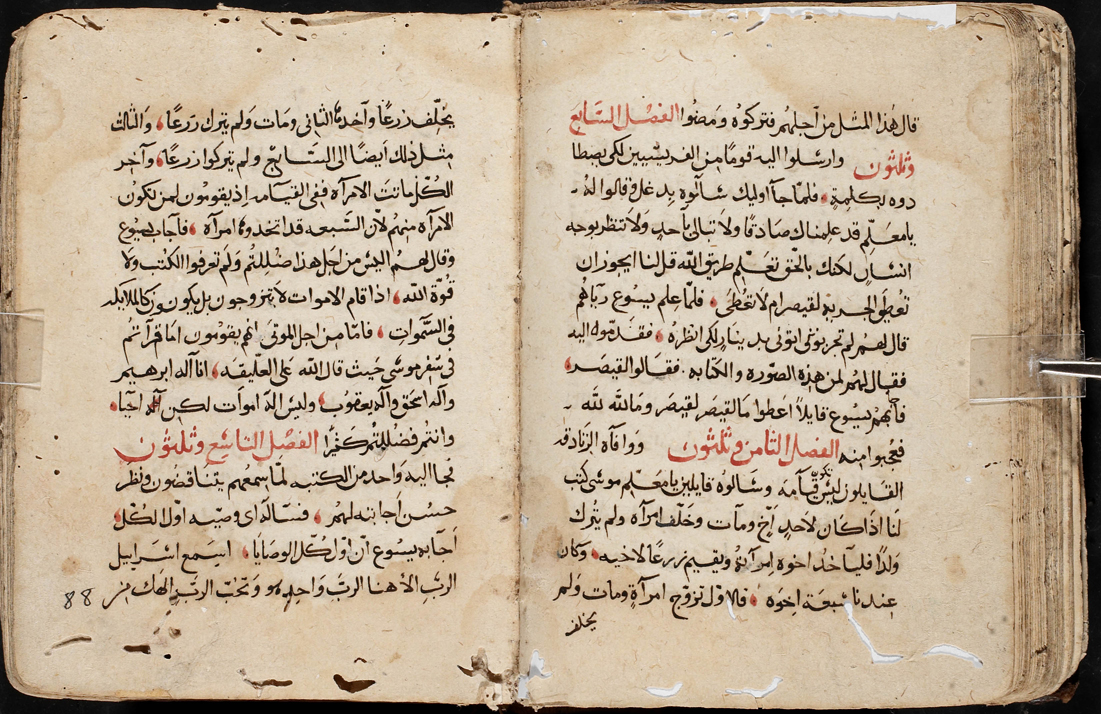 قال هذا المثل من آجلهم فتركوه ومضوا الفصل السابع
وثلثون وارسلوا اليه قومًا من الفريسيين لكى يصطا
دوه بكلمةٍ فلمّا جآ اوليك سالوه بدغل وقالوا له
يامعلّم قد علمناك صادقًا ولا تبالى بأحدٍ ولا تنظر بوجه
انسانٍ لكنك بالحق تعلّم طريق الله قل لنا ايجوز ان
نعطى الجزية لقيصر ام لا نعطى فلمّا علم يسوع رياهم
قال لهم لم تجربونى اتونى بدينارٍ لكى انظره فقدّموه اليه
فقال لهم لمن هذه الصّوره والكتابه فقالوا القيصر
فأجابهم يسوع قايلاً اعطوا ما لقيصر لقيصر وما لله لله
فعجبوا منه الفصل الثامن وثلثون ووافاه الزنادقه
القايلون ليس قيآمه وسالوه قايلين يامعلّم موسى كتب
لنا اذا كان لاحدٍ آخ ومآت وخلّف امرآه ولم يترك
ولدًا فلياخذ اخوه امرآته ويقيم زرعًا لاخيه وكان
عندنا سبعة اخوه فالاوّل تزوّج امرآة ومات ولم
يخلف
يخلّف زرعًا وآخدها الثانى ومات ولم يترك زرعًا والثالث
مثل ذلك ايضًا الى السّابع ولم يتركوا زرعًا وآخر
الكلّ ماتت الامرآه ففى القيامه اذ يقومون لمن تكون
الامرآه منهم لآن السّبعه قد اتخدوها امرآة فآجاب يسوع
وقال لهم اليس من اجل هذا ضللتم ولم تعرفوا الكتب ولا
قوّة الله اذا قام الاموات لا يتزوجون بل يكونون كالملايكه
فى السّموات فامّا من اجل الموتى انهم يقومون اما قرآتم
فى سفر موسى حيث قال الله على العلّيقه انا آله ابرهيم
وآله اسحق وآله يعقوب وليس الهَ امواتٍ لكن آله احيا
وانتم فضللتم كثيرًا الفصل التاسع وثلثون
فجا اليه واحد من الكتبه لمّا سمعهم يتناقضون ونظر
حسن اجابته لهم فسآله اى وصيه اولا لكلّ
آجابه يسوع آن اوّل كلّ الوصايا اسمع اسرايل
الربّ الاهنا الربّ واحد هو وتحبّ الربّ الهك من
88